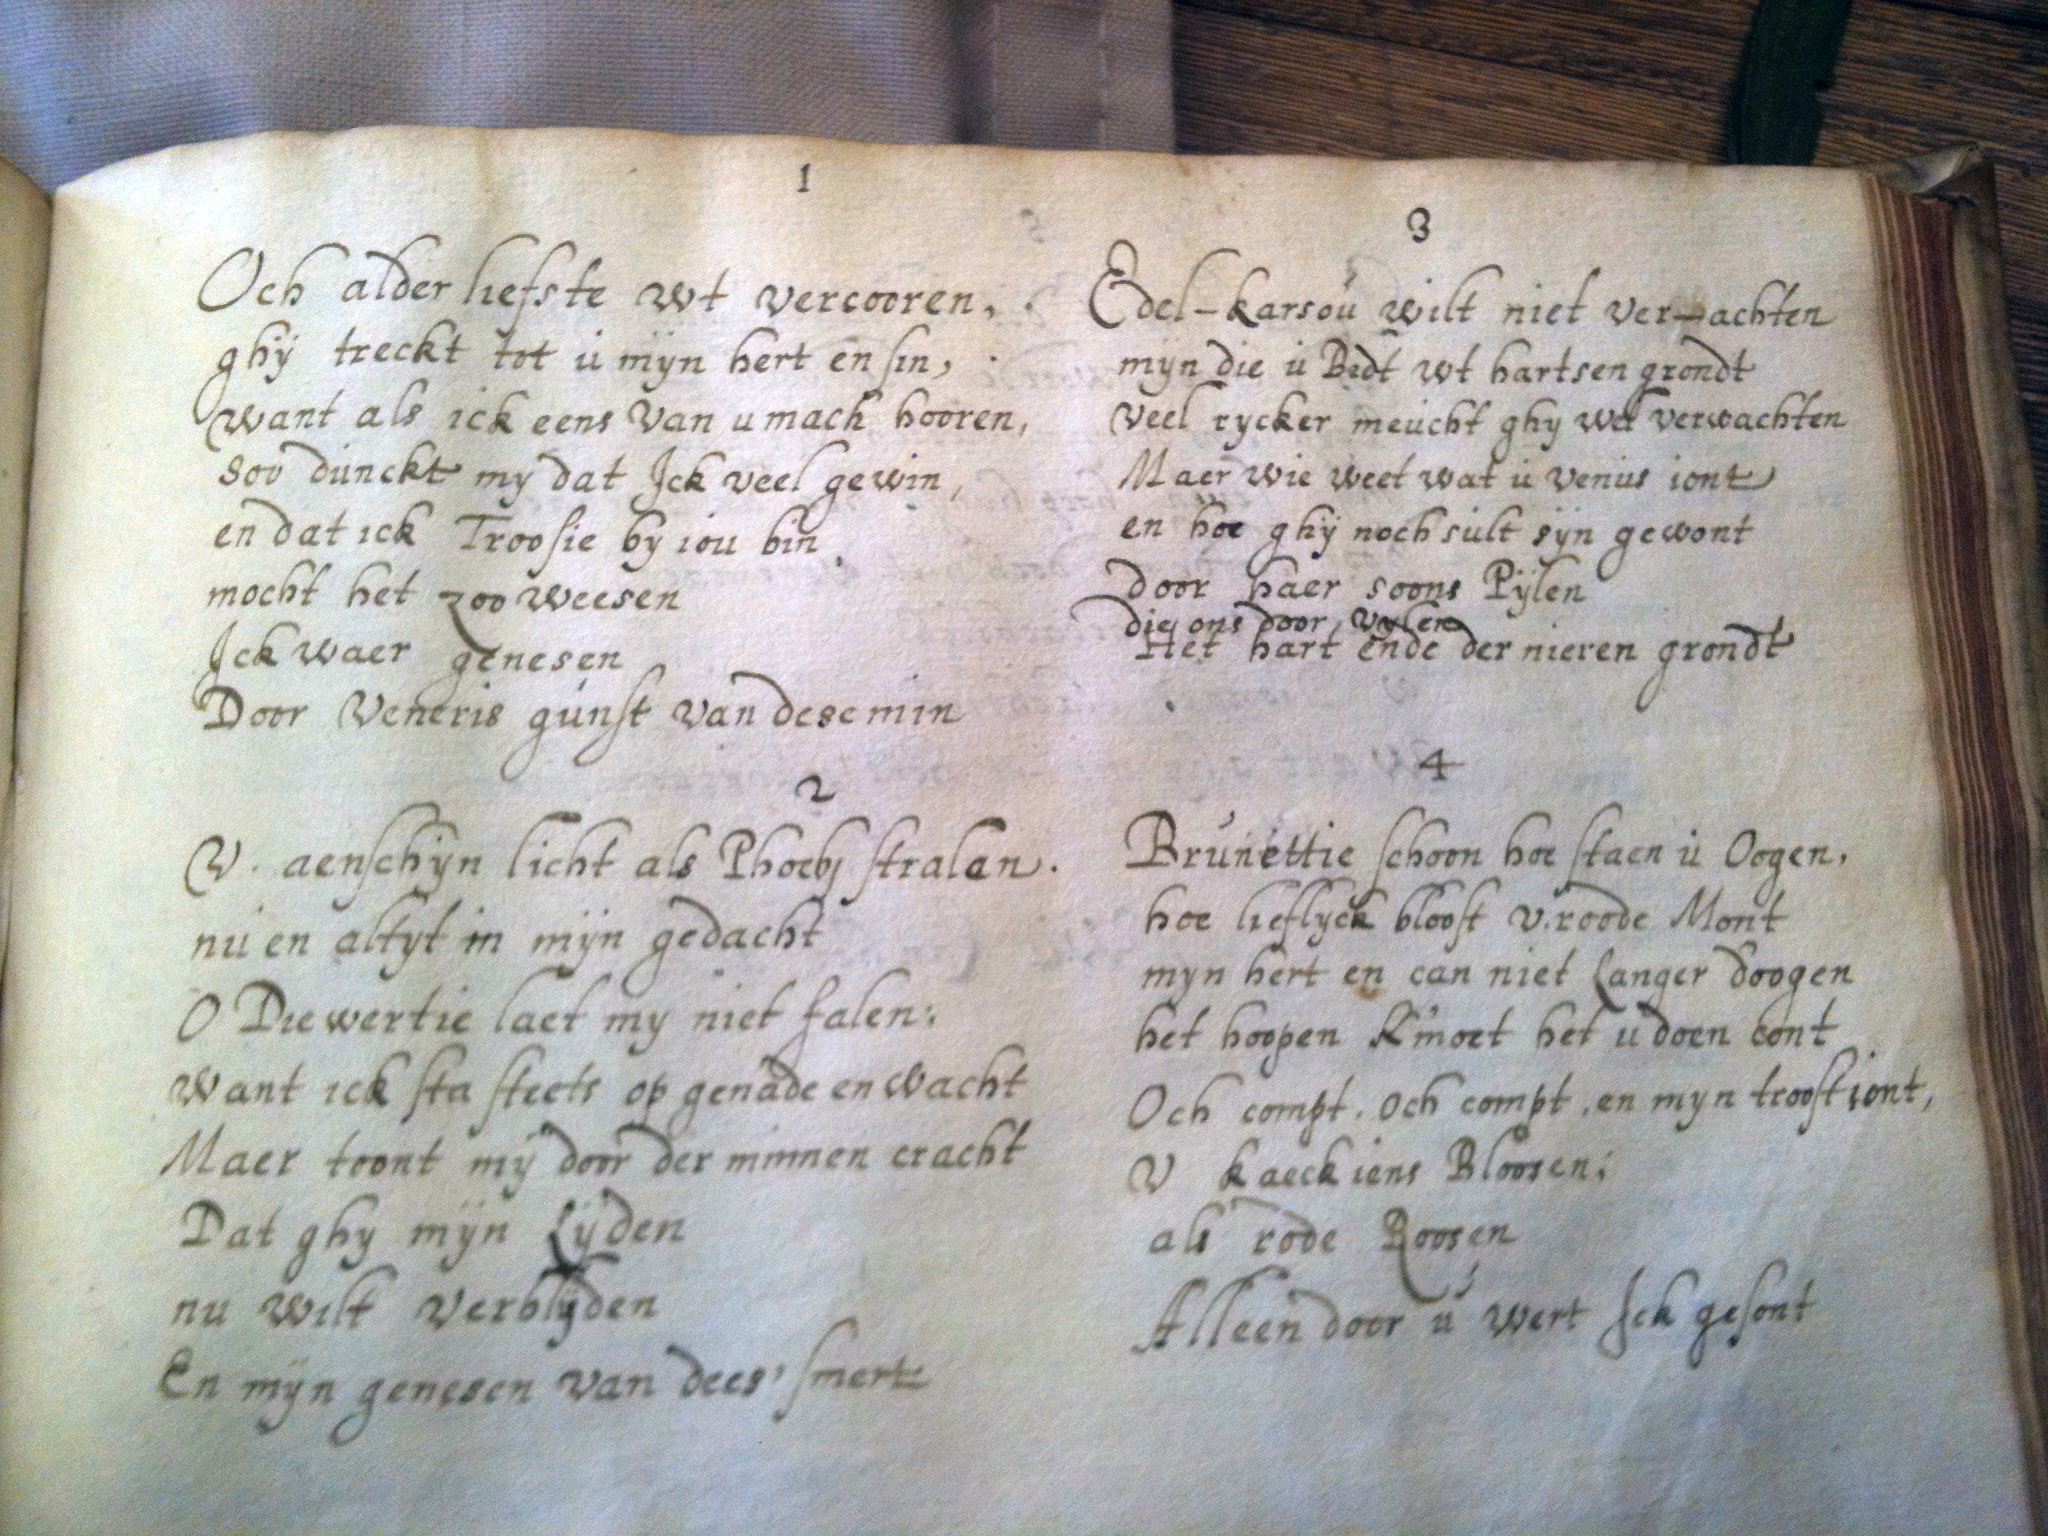 1
Och alder liefste wt vercooren,
ghÿ treckt tot ú mÿn hert en sin,
Want als ick eens van u mach hooren,
Soo dúnckt my dat Ick veel gewin,
en dat ick Troosie by iou bin,
mocht het zoo weesen
Ick waer genesen
Door Veneris gúnst van dese min
2
V. aenschÿn licht als Phoebj stralen.
nú en altyt in mÿn gedacht
O Diewertie laet my niet falen;
Want ick sta steets op genade en wacht
Maer toont mÿ door der minnen cracht
Dat ghy mÿn lÿden
nu wilt verblÿden
En mÿn genesen van dees' smert
3
Edel-karsoú wilt niet ver-achten
mÿn die ú Bidt wt hartsen grondt
veel rycker meúcht ghy wel verwachten
Maer wie weet wat ú venus iont
en hoe ghÿ noch súlt sÿn gewont
door haer soons Pÿlen
die ons door vylen
Het hart ende der nieren grondt
4
Brúnettie schoon hoe staen ú Oogen,
hoe lieflyck bloost v. roode Mont
myn hert en can niet langer doogen
het hoopen k'moet het u doen cont
Och compt. Och compt, en myn troost iont,
V kaeckiens Bloosen;
als rode Roosen
Alleen door ú wert Ick gesont